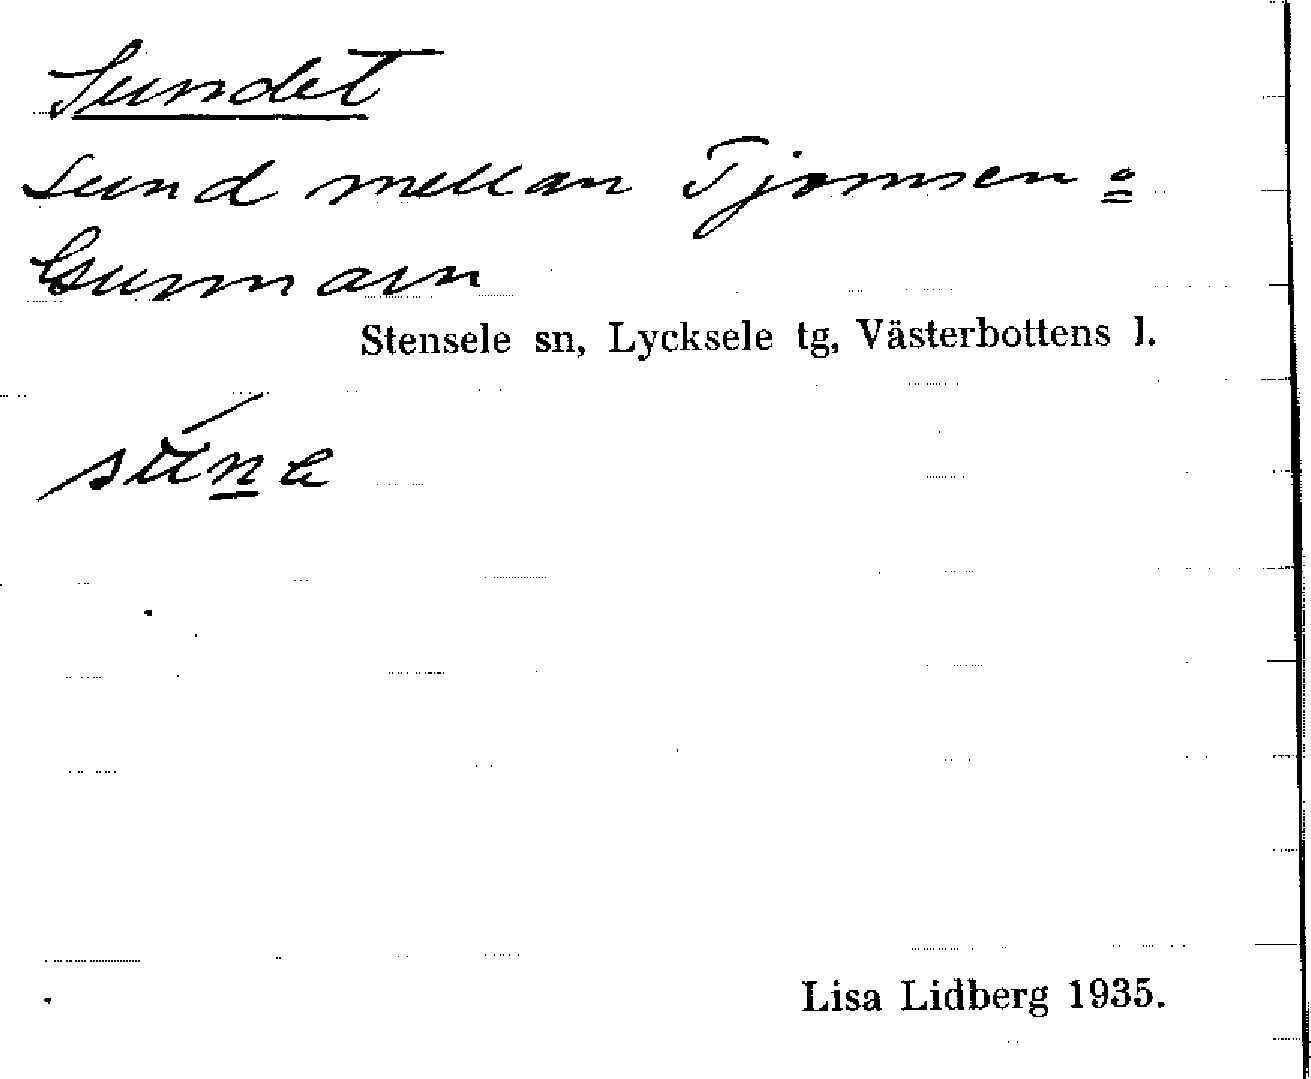 Sundet
Sund mellan Tjomsen o
Gunnarn
Stensele sn, Lycksele tg, Västerbottens l.
Lisa Lidberg 1935.